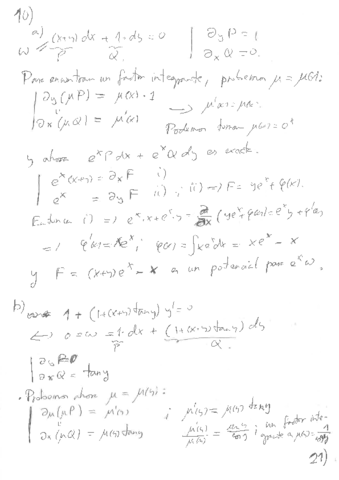 10)
a) (x+y)dx + 1·dy = 0 | ∂yP = 1
ω = P Q | ∂xQ = 0.
Para encontrar un factor integrante, probemos μ = μ(x):
∂y(μP) = μ(x)·1
∂x(μQ) = μ'(x) → μ'(x) = μ(x).
Podemos tomar μ(x) = eˣ
y ahora eˣPdx + eˣQdy es exacta.
eˣ(x+y) = ∂xF i)
eˣ = ∂yF ii) ; ii) ⇒ F = yeˣ + φ(x).
Entonces i) ⇒ eˣ·x + eˣ·y = ∂/∂x (yeˣ + φ(x)) = eˣy + φ'(x)
⇒ φ'(x) = xeˣ ; φ(x) = ∫xeˣdx = xeˣ - x
y F = (x+y)eˣ - x es un potencial para eˣω.
b) 1 + (1+(x+y)tan y) y' = 0
↔ 0 = ω = 1·dx + (1+(x+y)tan y) dy
P Q.
∂yP=0
∂xQ = tan y
· Probemos ahora μ = μ(y):
(μP) = μ'(y) ; μ'(y) = μ(y) tan y
(μQ) = μ(y) tan y μ'(y)/μ(y) = ; un factor inte-
grante
21)